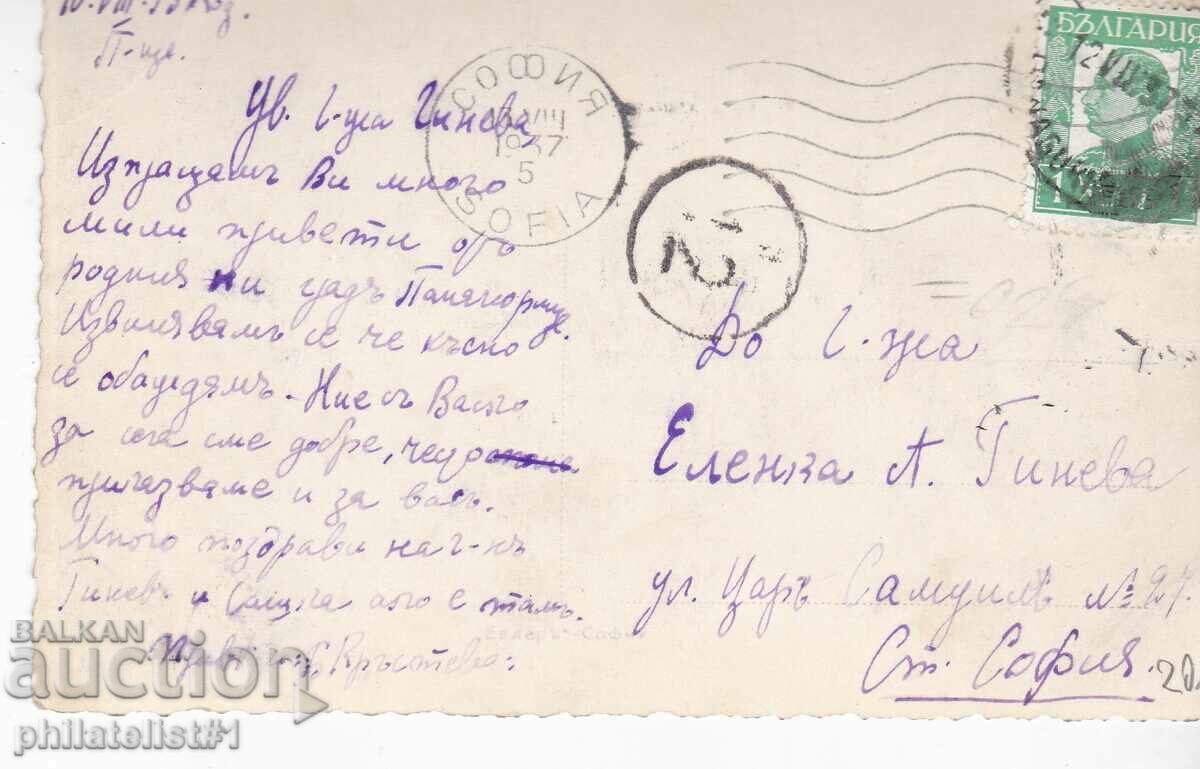 П-ще.
Ув. Г-жа Гинева,
Изпращамъ Ви много
мили привети отъ
родния ни градъ Панагюрище.
Извинявамъ се че късно
се обаждамъ. Ние съ Васко
за сега сме добре,
пригазваме и за васъ.
Много поздрави на г-нъ
Гиневъ и Сашка ако е тамъ.
Кръстева.
СОФИЯ
VIII
1937
5
SOFIA
БЪЛГАРИЯ
12 VIII 37
1
До Г-жа
Еленка А. Гинева
ул. Царь Самуилъ № 27.
Ст. София.
20
Евлеръ - София
BALKAN
auction
philatelist#1